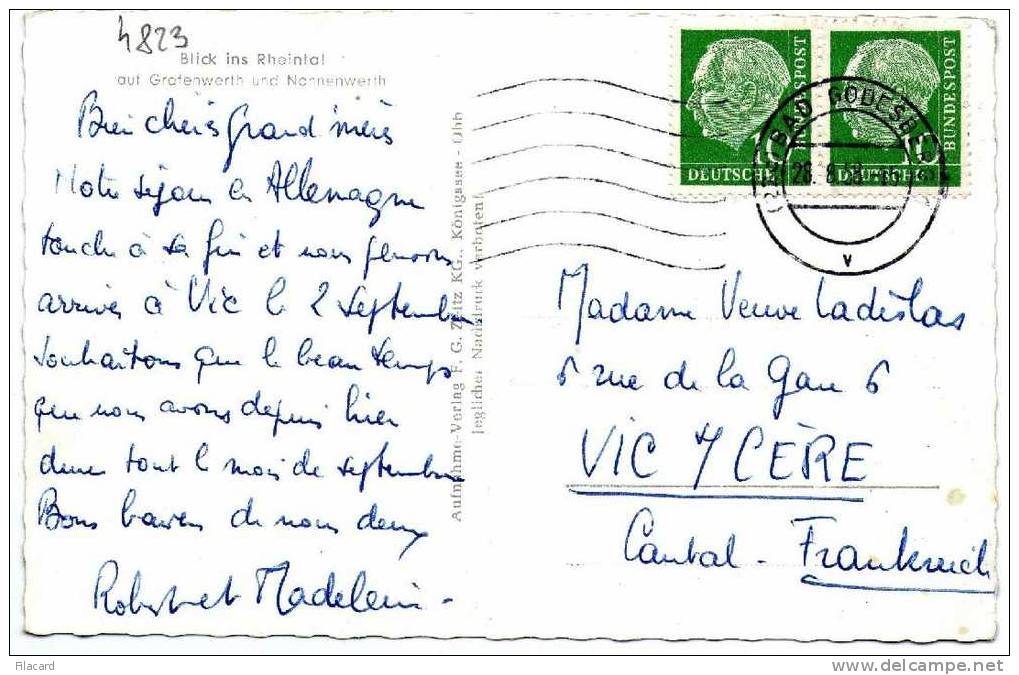 4823
Blick ins Rheintal
auf Grafenwerth und Nonnenwerth
Bien chère grand'mère
Notre séjour en Allemagne
touche à sa fin et nous pensons
arriver à Vic le 2 septembre
Souhaitons que le beau temps
que nous avons depuis hier
dure tout le mois de septembre
Bons baisers de nous deux
Robert et Madeleine -
Aufnahme-Verlag F. G. Zeitz KG., Königssee-Obb
Jeglicher Nachdruck verboten!
DEUTSCHE BUNDESPOST
10
DEUTSCHE BUNDESPOST
10
BAD GODESBERG
28. 8.
v
Madame Veuve Ladislas
6 rue de la Gare 6
VIC s/ CÈRE
Cantal - Frankreich
Filacard
www.delcampe.net